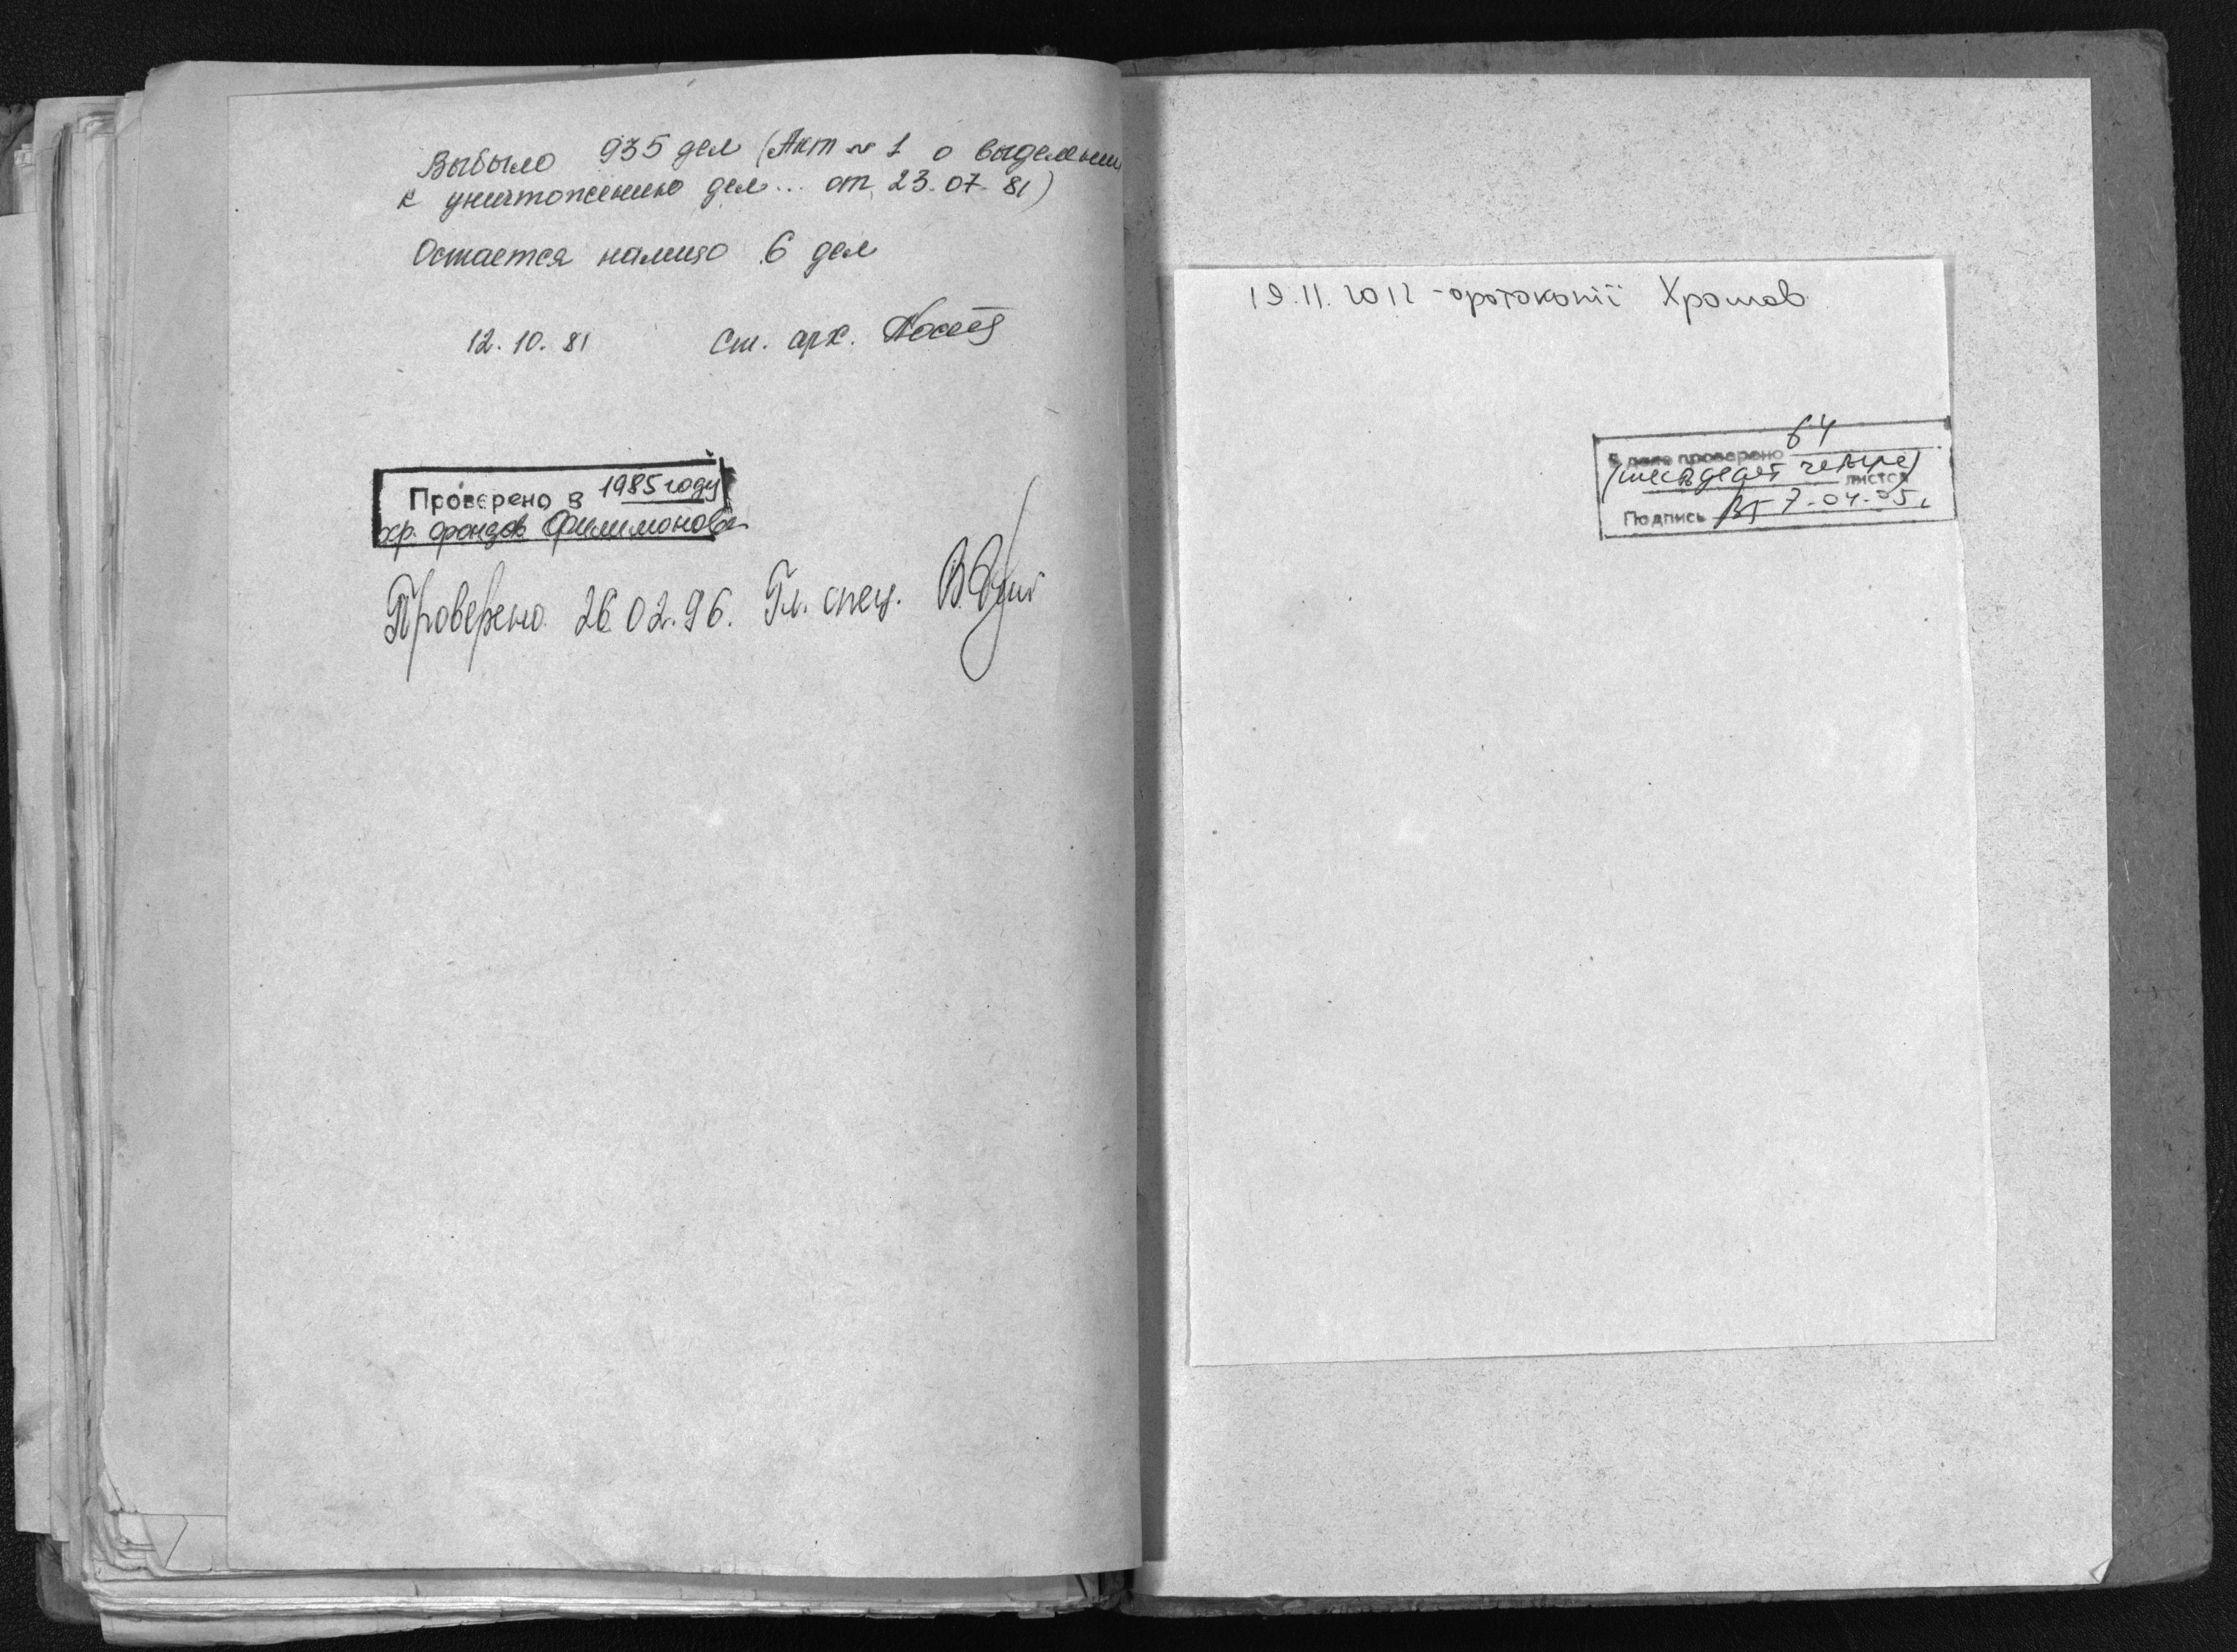 Выбыло 935 дел (Акт № 1 о выделении
к уничтожению дел... от 23.07.81)
Остается налицо 6 дел
12.10.81 Ст. арх.
Проверено в 1985 году
хр. фондов Филимонова
Проверено 26.02.96. Гл. спец.
19.11.2012 - фотокопії Хромов
В деле проверено 64
(шестьдесят четыре)
листов
Подпись 7-04-05г